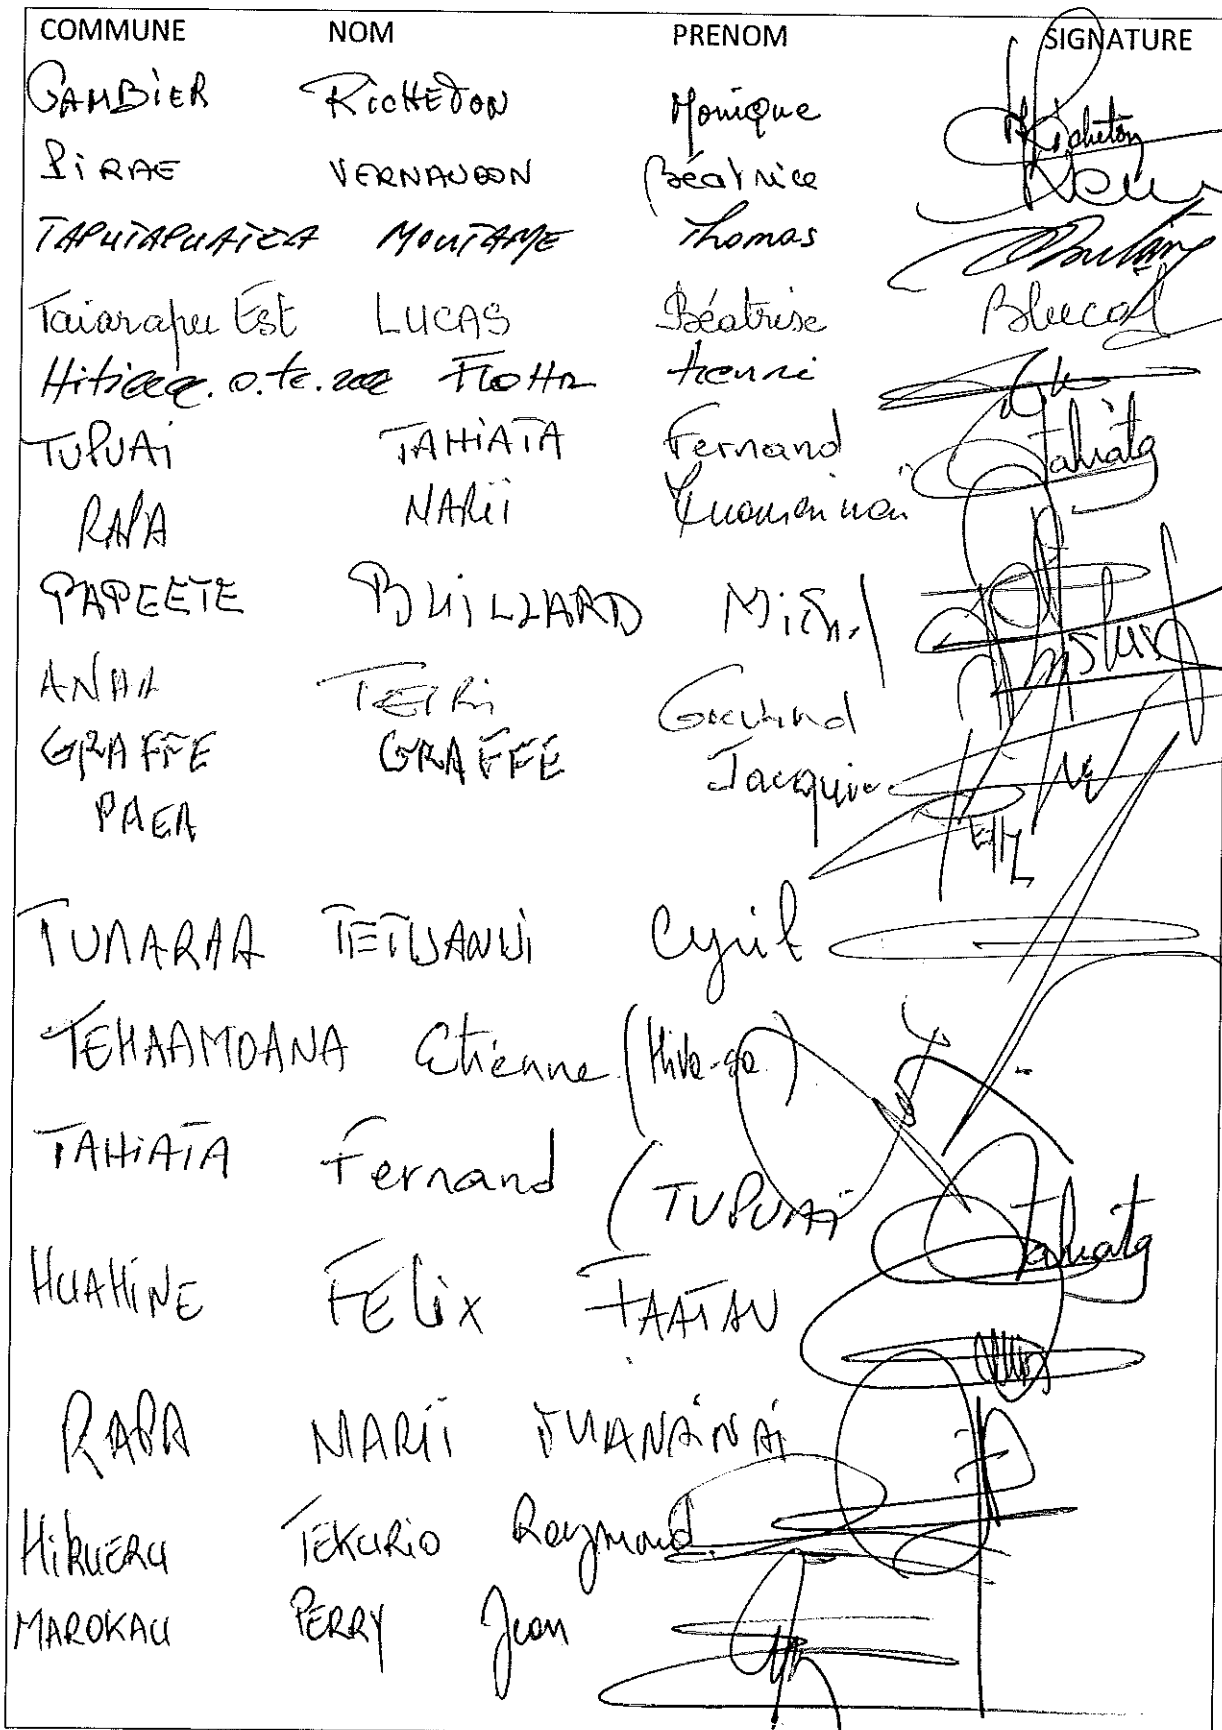 COMMUNE NOM PRENOM SIGNATURE
GAMBIER RICHETON Monique Richeton
PIRAE VERNAUDON Béatrice
TAPUTAPUATEA MOUTAME Thomas
Taiarapu Est LUCAS Béatrise Blucas
Hitiaa.o.te.raa FLOHR Henri
TUPUAI TAHIATA Fernand Tahiata
RAPA NARII
PAPEETE BUILLARD Michel
ANAA TERI
GRAFFE GRAFFE
PAEA
TUMARAA TETUANUI Cyril
TEHAAMOANA Etienne (Hiva-oa)
TAHIATA Fernand (TUPUAI Tahiata
HUAHINE FELIX FAATAU
RAPA NARII TUANAINAI
HIKUERU TEKURIO Raymond
MAROKAU PERRY Jean